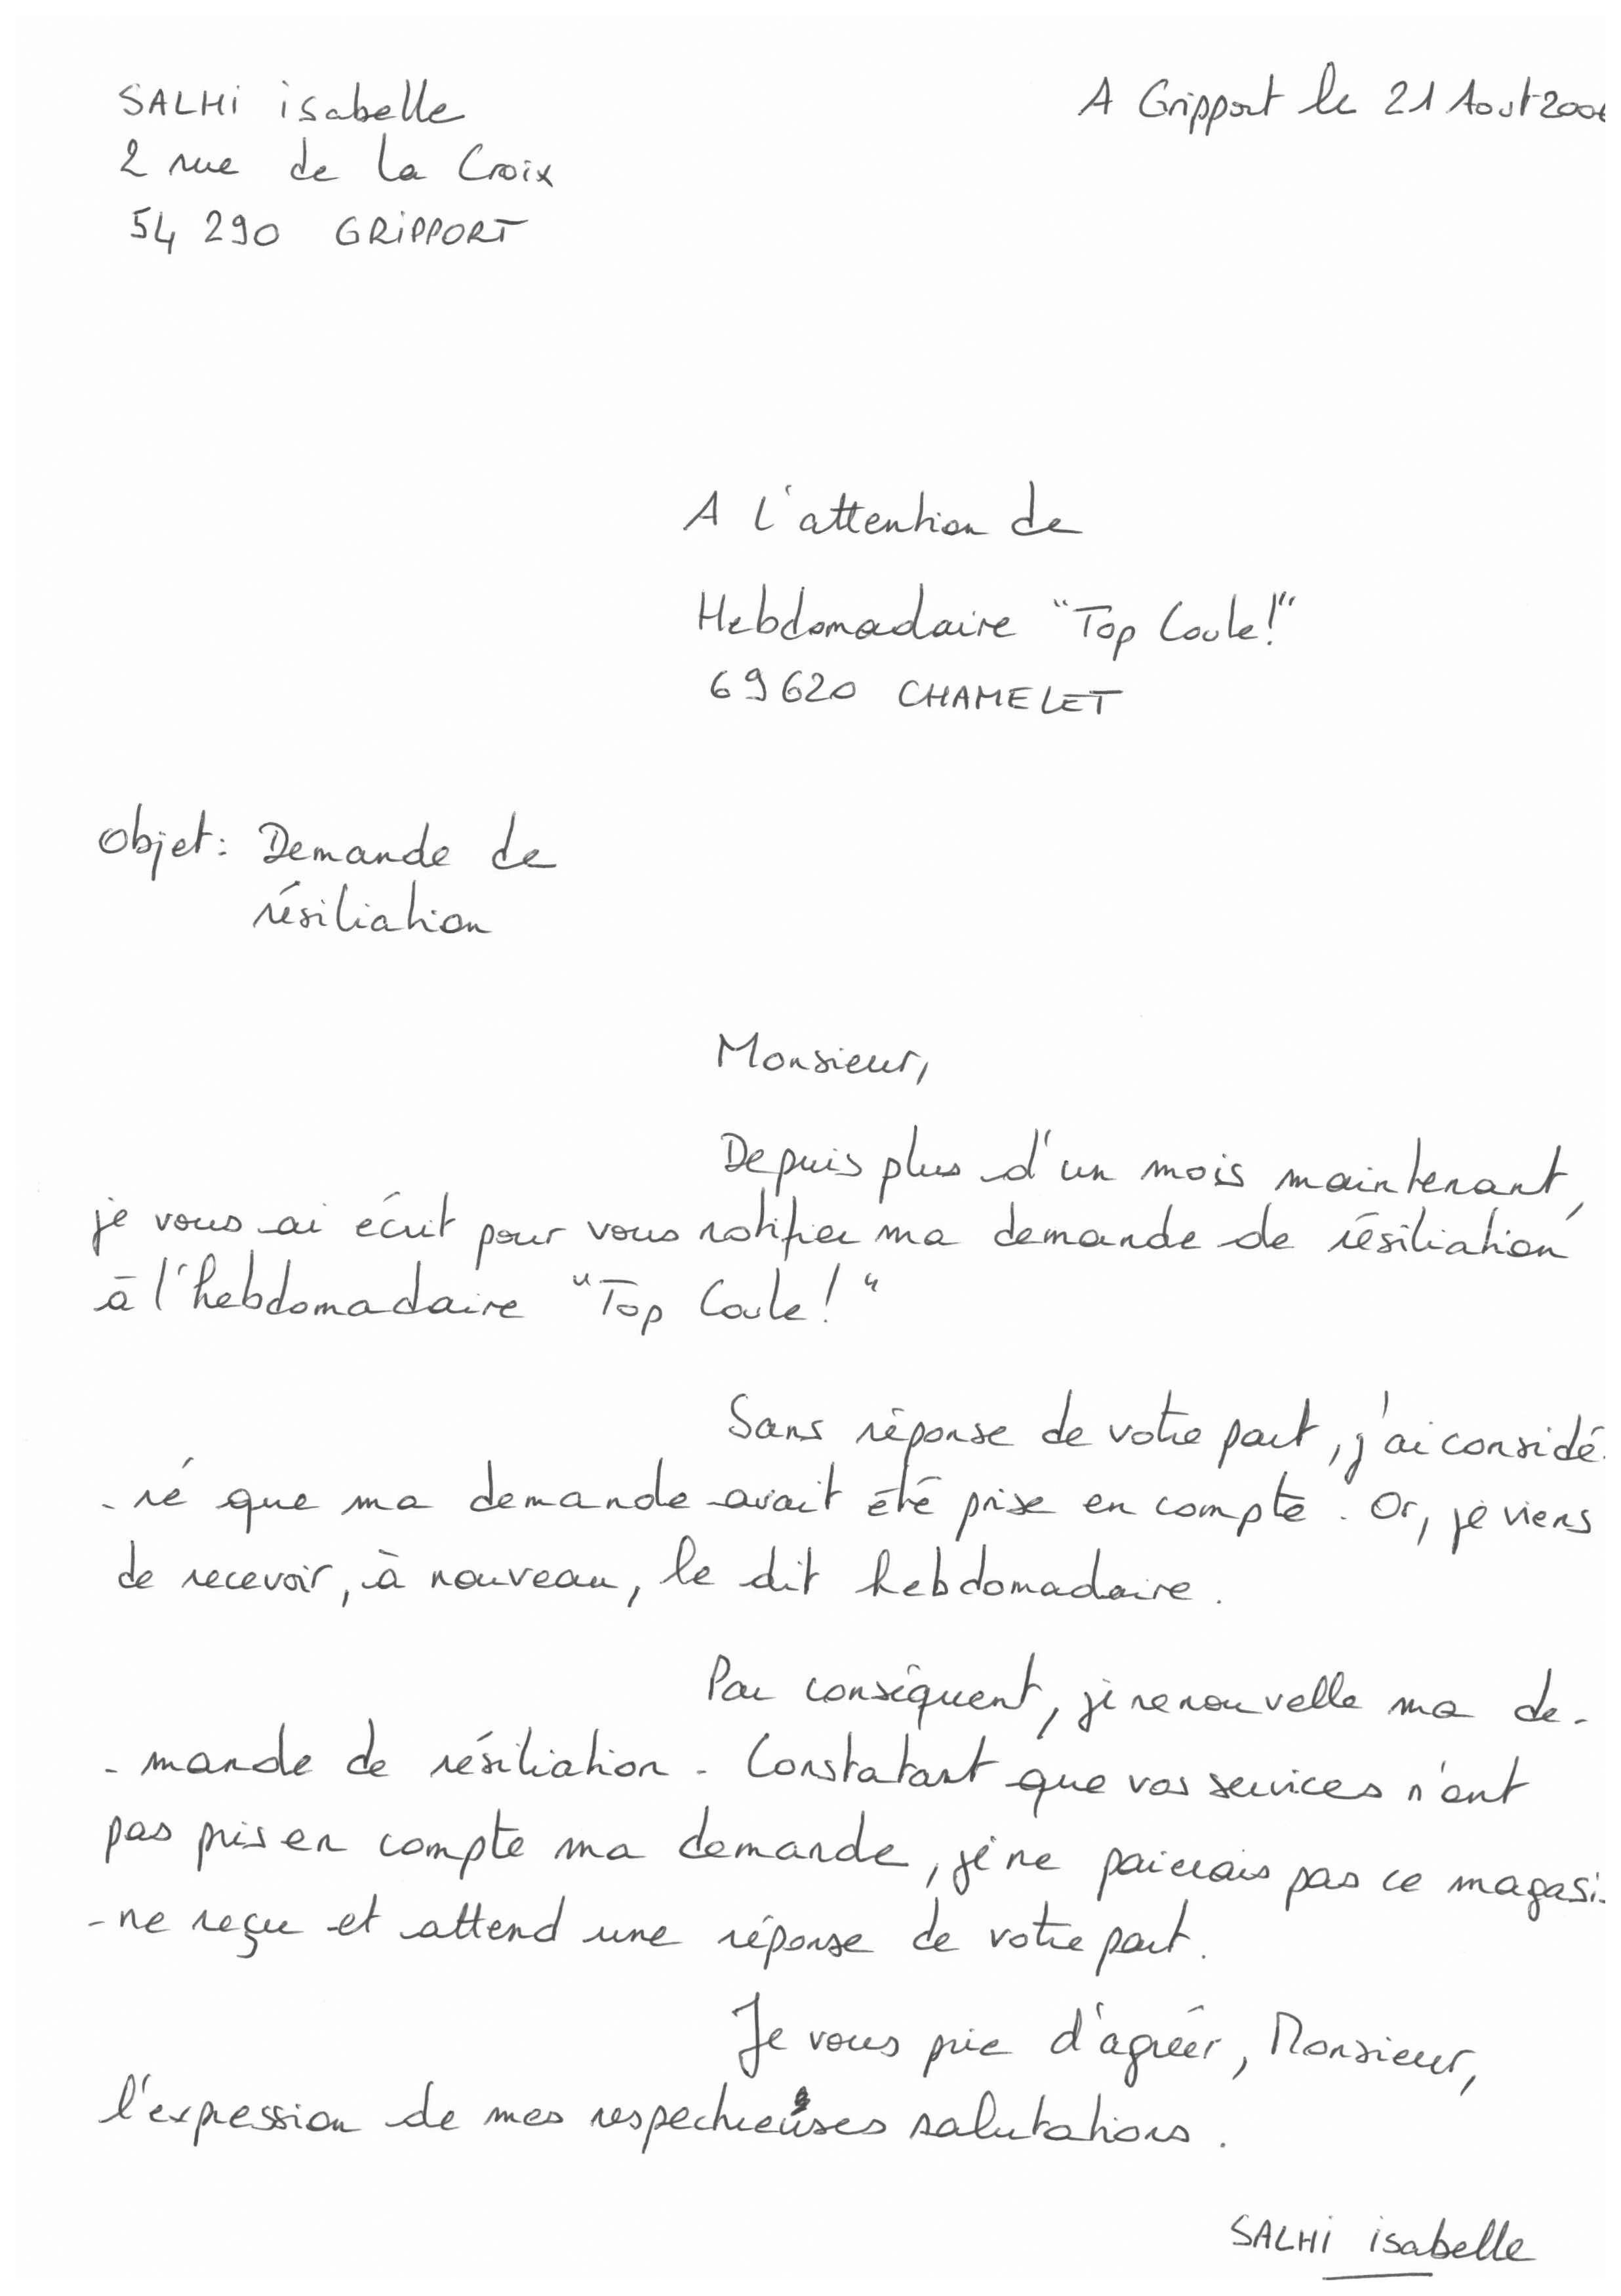 SALHi isabelle
A Gripport le 21 Aout 2006
2 rue de la Croix
54 290 GRiPPORT
A l'attention de
Hebdomadaire "Top Coule!"
69620 CHAMELET
Objet: Demande de
résiliation
Monsieur,
Depuis plus d'un mois maintenant,
je vous ai écrit pour vous notifier ma demande de résiliation
à l'hebdomadaire "Top Coule!"
Sans réponse de votre part, j'ai considé
-ré que ma demande avait été prise en compte. Or, je viens
de recevoir, à nouveau, le dit hebdomadaire.
Par conséquent, je renouvelle ma de-
-mande de résiliation. Constatant que vos services n'ont
pas pris en compte ma demande, je ne paierais pas ce magasi-
-ne reçu et attend une réponse de votre part.
Je vous prie d'agréer, Monsieur,
l'expression de mes respectueuses salutations.
SALHi isabelle